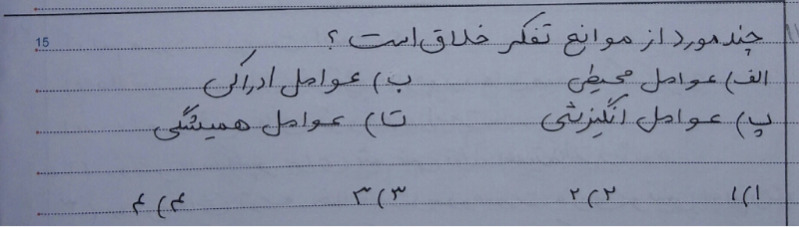 15
چند مورد از موانع تفکر خلاق است ؟
الف) عوامل محیطی ب) عوامل ادراکی
پ) عوامل انگیزشی تا) عوامل همیشگی
۱) ۱ ۲) ۲ ۳) ۳ ۴) ۴